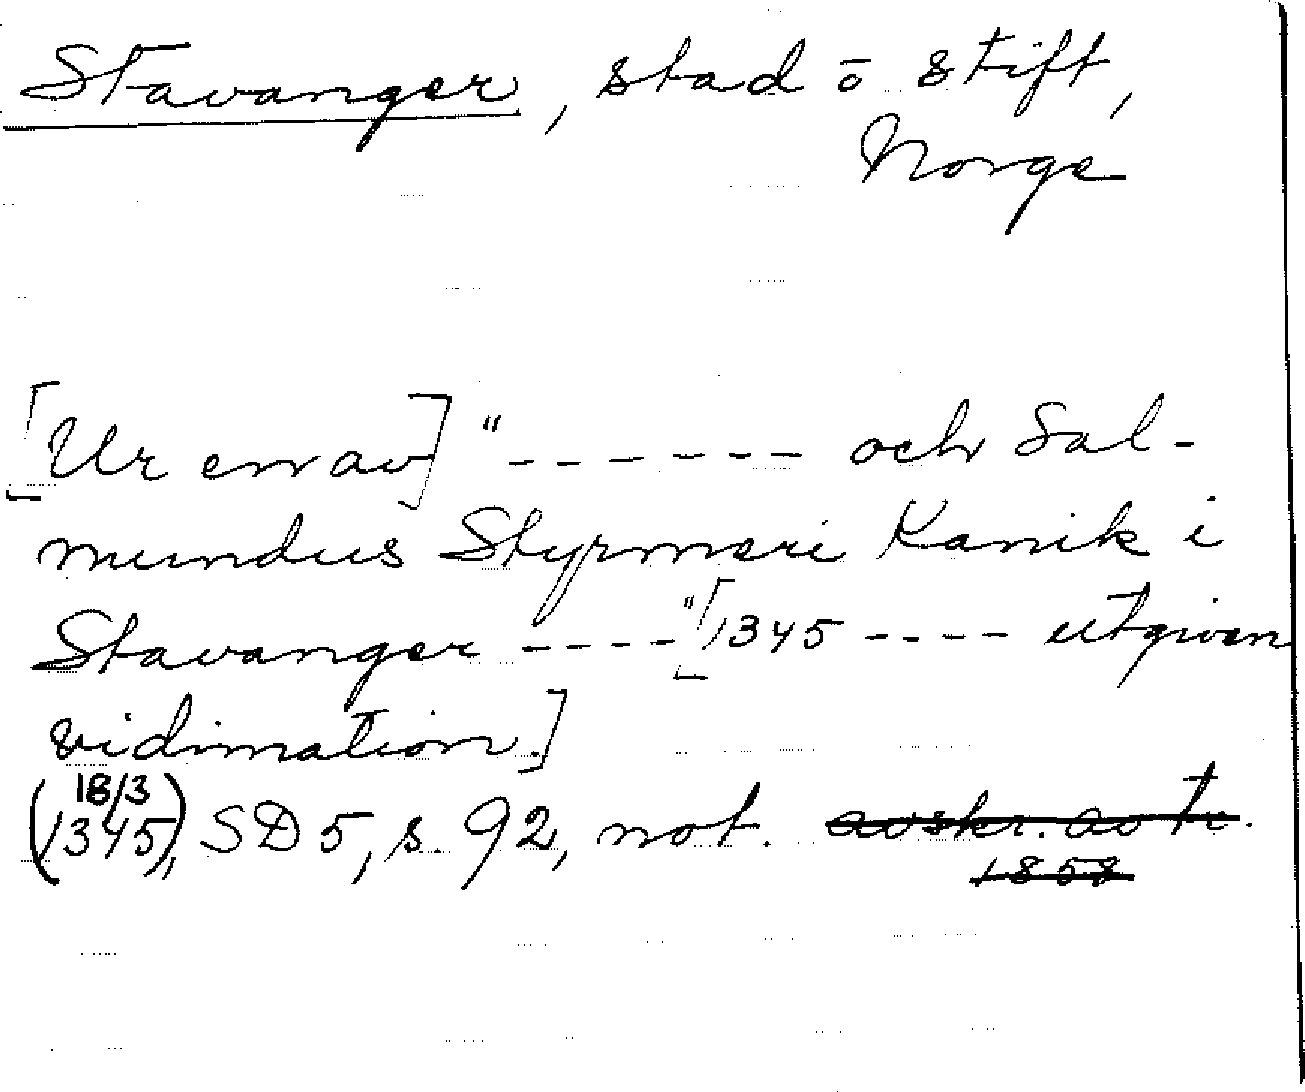 Stavanger, stad o stift,
Norge
[Ur en av] "------ och Sal-
mundus Styrmeri Kanik i
Stavanger ----"[1345 ---- utgiven
vidimation.]
18/3
(1345), SD 5, s. 92, not. avskr. av tr.
1858